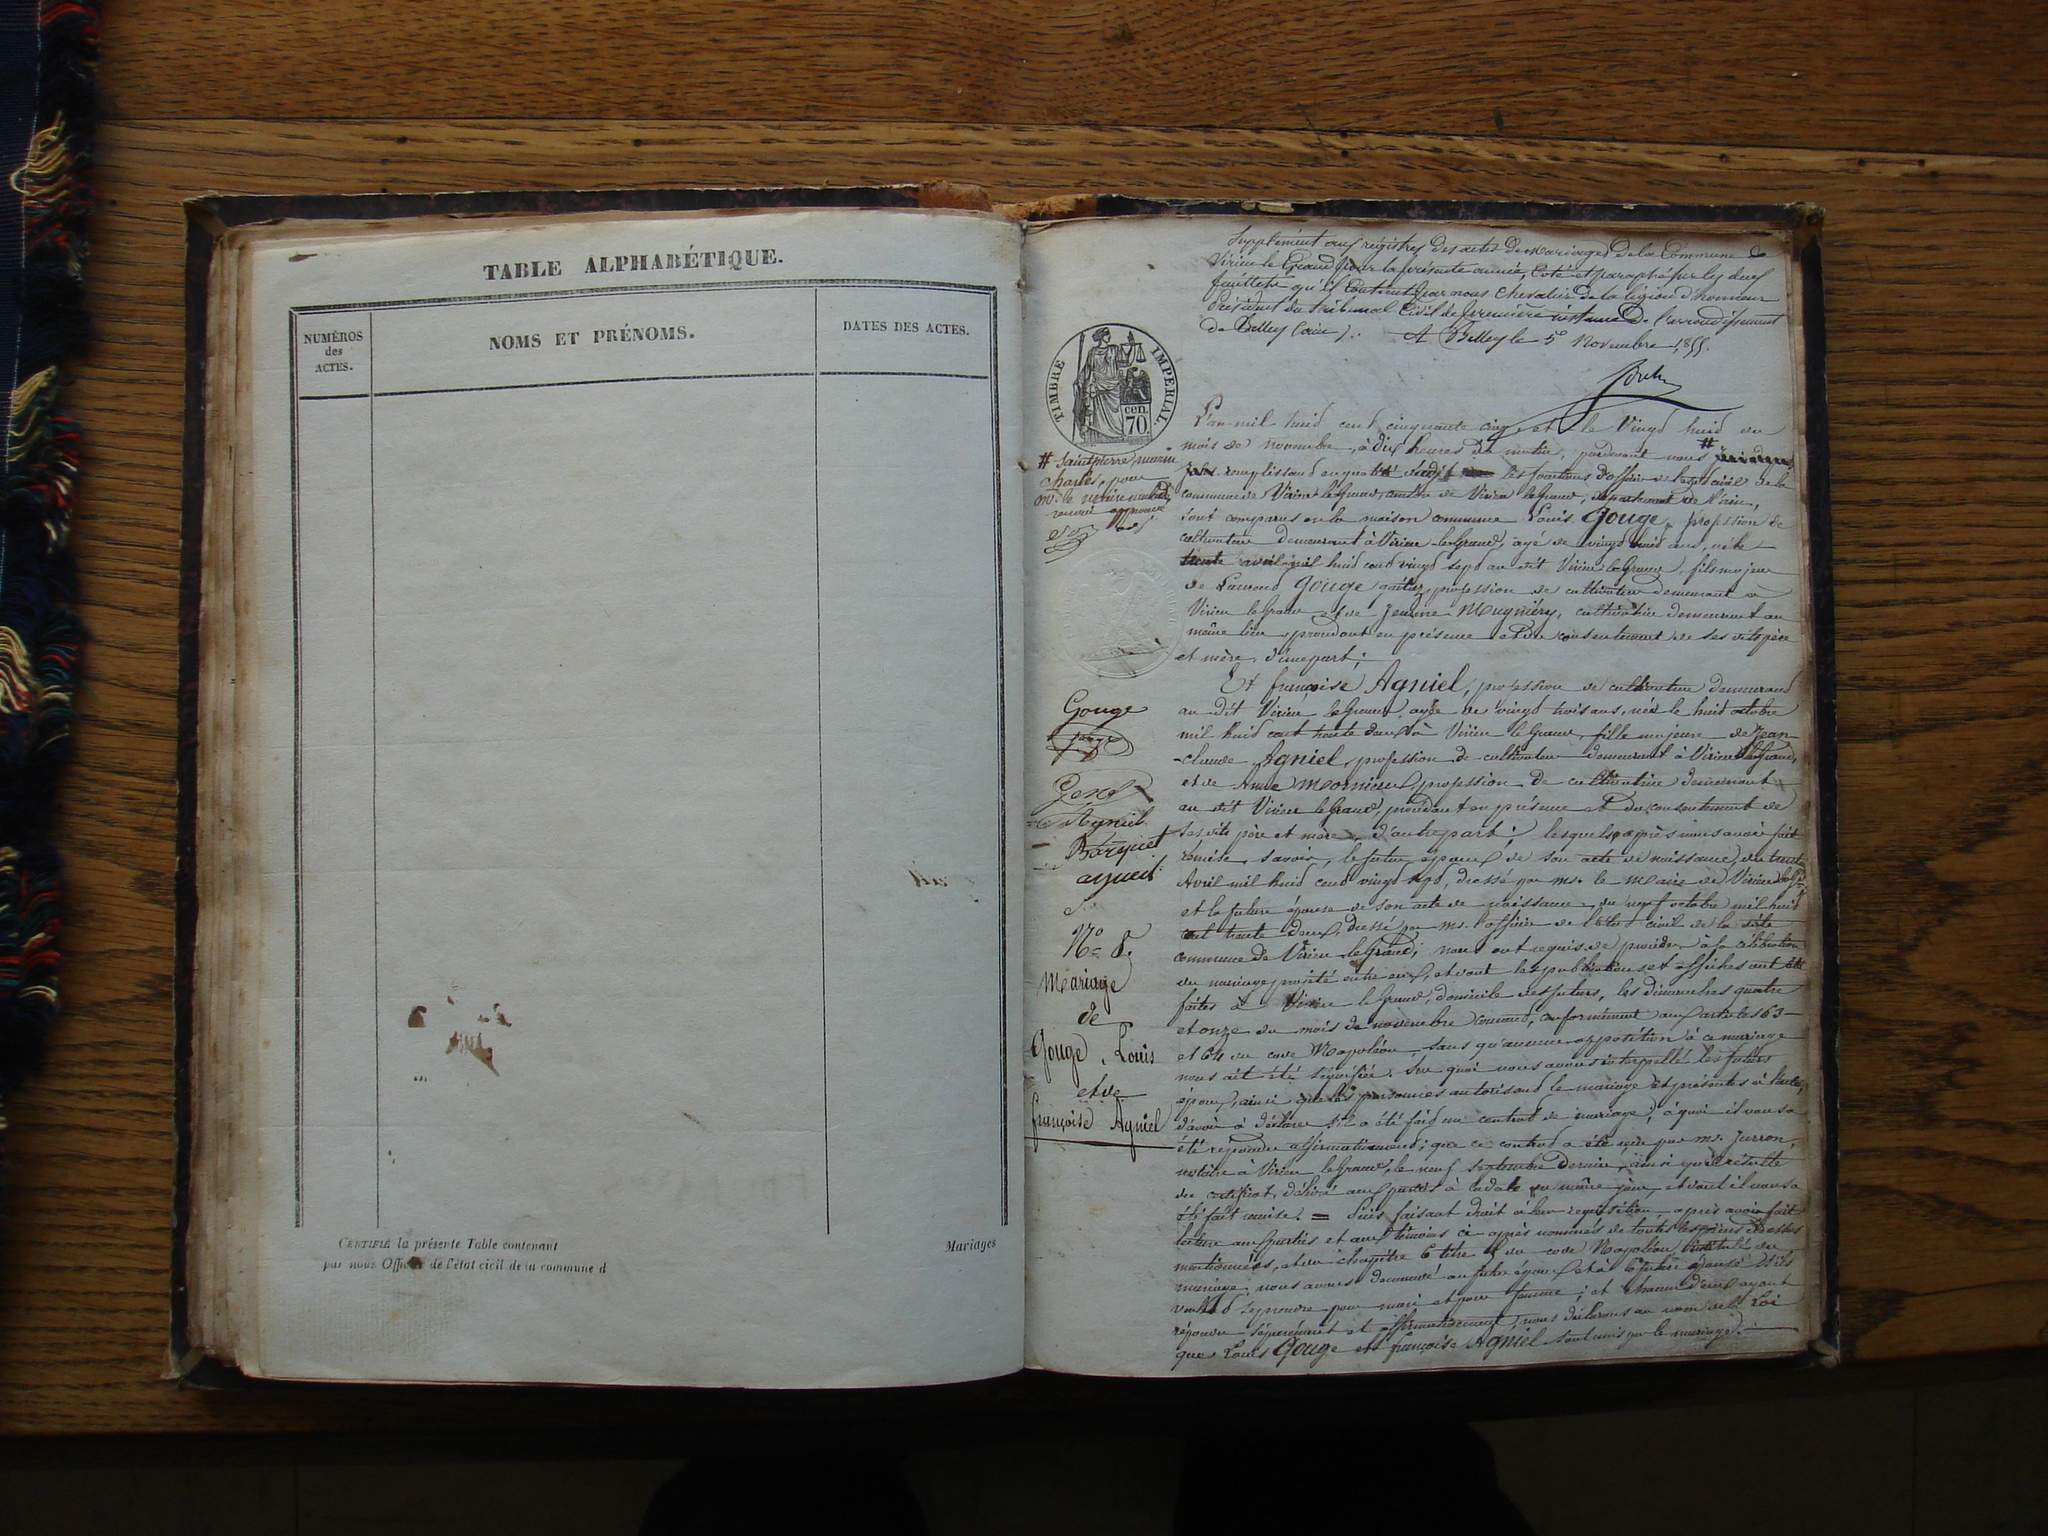 TABLE ALPHABÉTIQUE.
NUMÉROS
des
ACTES.
NOMS ET PRÉNOMS.
DATES DES ACTES.
CERTIFIÉ la présente Table contenant
par nous Officier de l'état civil de la commune d
Mariages
Supplément aux régistres des actes de mariages de la Commune de
Virieu le Grand pour la présente année, Coté et paraphé sur les deux
feuillets qu'il contient par nous Chevalier de la légion d'honneur
Président du Tribunal Civil de première instance de l'arrondissement
de Belley (ain). A Belley le 5 Novembre 1855.
TIMBRE IMPERIAL.
70 cen.
# Saint pierre, marin
Charles, pour
L'an mil huid cent cinquante cinq et le Vingd huid du
mois de novembre, à dix heures du matin, pardevant nous #
remplissant en qualité les fonctions d'officier de l'état civil de la
commune de Virieu le Grand, canton de Virieu le Grand, département de l'ain,
sont comparus en la maison commune Louis Gouge, profession de
cultivateur demeurant à Virieu le Grand, agé de vingd huid ans, né le
trente avril mil huid cent vingd sept au dit Virieu le Grand, fils majeur
de Laurend Gouge profession de cultivateur demeurant à
Virieu le Grand et de Jeanne Mugniéry, cultivatrice demeurant au
même lieu, procédant en présence et du consentement de ses dits père
et mère, d'une part;
Et françoise Agniel, profession de cultivatrice demeurant
au dit Virieu le Grand, agée de vingd trois ans, née le huid octobre
mil huid cent trente deux à Virieu le Grand, fille majeure de Jean-
-claude Agniel, profession de cultivateur demeurant à Virieu le Grand,
et de Anne Mornieux, profession de cultivatrice demeurant
au dit Virieu le Grand, procédant en présence et du consentement de
ses dits père et mère, d'autre part; lesquels après nous avoir fait
remise, savoir, le futur époux de son acte de naissance, du trente
Avril mil huid cent vingd sept, dressé par mr. le maire de Virieu le Gd
et la future épouse de son acte de naissance, du neuf octobre mil huid
cent trente deux, dressé par mr. l'officier de l'état civil de la dite
commune de Virieu le Grand; nous ont requis de procéder à la célébration
du mariage projeté entre eux, et dont les publications et affiches ont été
faites à Virieu le Grand, domicile des futurs, les dimanches quatre
et onze du mois de novembre courant, conformément aux articles 63
et 64 du code Napoléon, sans qu'aucune opposition à ce mariage
nous ait été signifiée. Sur quoi nous avons interpellé les futurs
époux, ainsi que les personnes autorisant le mariage et présentes à l'acte,
d'avoir à déclarer s'il a été fait un contrat de mariage; à quoi il nous a
été répondu affirmativement; que ce contrat a été reçu par mr. Jurron,
notaire à Virieu le Grand, le neuf septembre dernier, ainsi qu'il résulte
du certificat, délivré aux parties à la date du même jour, et dont il nous a
été fait remise. = Puis faisant droit à leur réquisition, après avoir fait
lecture aux parties et aux témoins ci après nommés de toutes les pièces ci dessus
mentionnées, et du chapitre 6 titre 5 du code Napoléon, intitulé du
mariage, nous avons demandé au futur époux et à la future épouse s'ils
veulent se prendre pour mari et pour femme; et chacun d'eux ayant
répondu séparément et affirmativement, nous déclarons au nom de la Loi
que Louis Gouge et françoise Agniel sont unis par le mariage.
Gouge
Agniel
Borquet
agniel
No 8.
Mariage
de
Gouge, Louis
et de
françoise Agniel